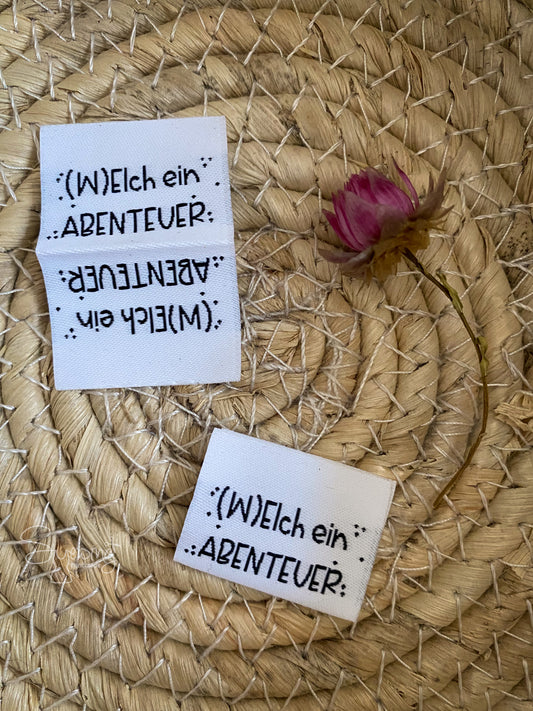 (W)Elch ein
ABENTEUER
ABENTEUER
(W)Elch ein
(W)Elch ein
ABENTEUER